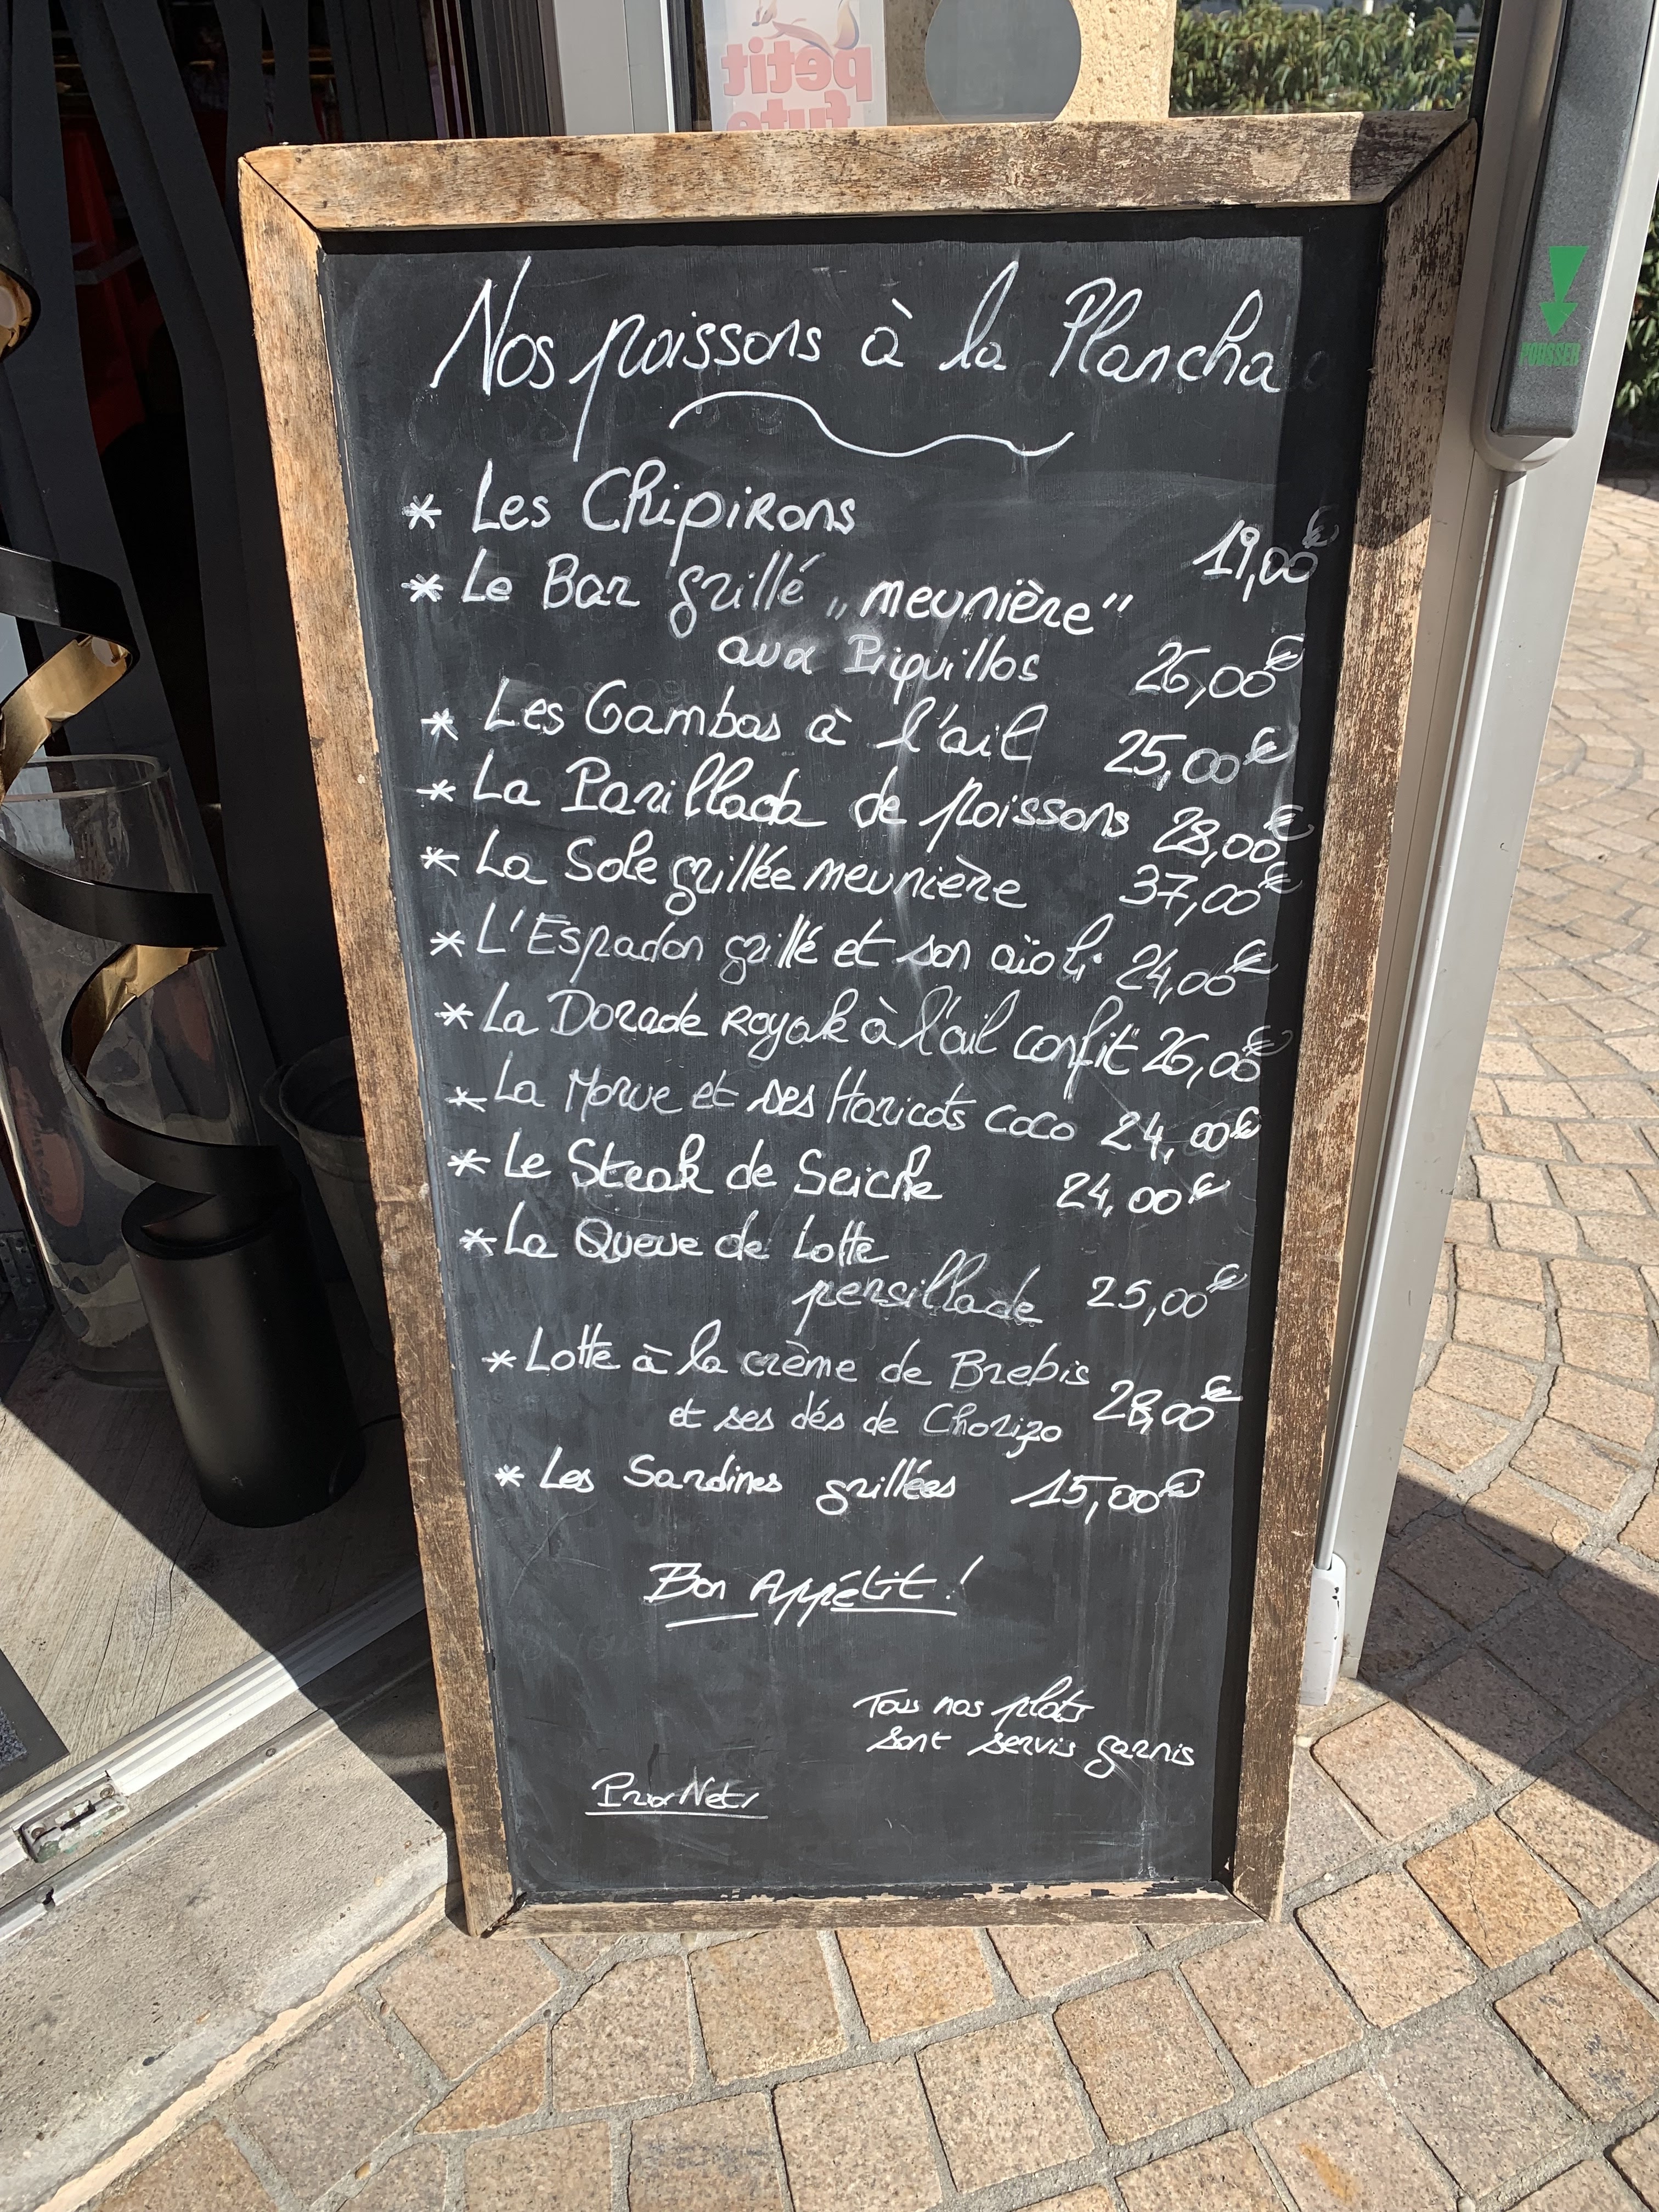 petit
fute
POUSSER
Nos poissons à la Plancha
* Les Chipirons 19,00€
* Le Bar grillé "meunière"
aux Piquillos 26,00€
* Les Gambas à l'ail 25,00€
* La Parillada de poissons 28,00€
* La Sole grillée meunière 37,00€
* L'Espadon grillé et son aïoli 24,00€
* La Dorade royale à l'ail confit 26,00€
* La Morue et ses Haricots coco 24,00€
* Le Steak de Seiche 24,00€
* La Queue de Lotte
persillade 25,00€
* Lotte à la crème de Brebis
et ses dés de Chorizo 28,00€
* Les Sardines grillées 15,00€
Bon Appétit !
Tous nos plats
sont servis garnis
Prix Nets